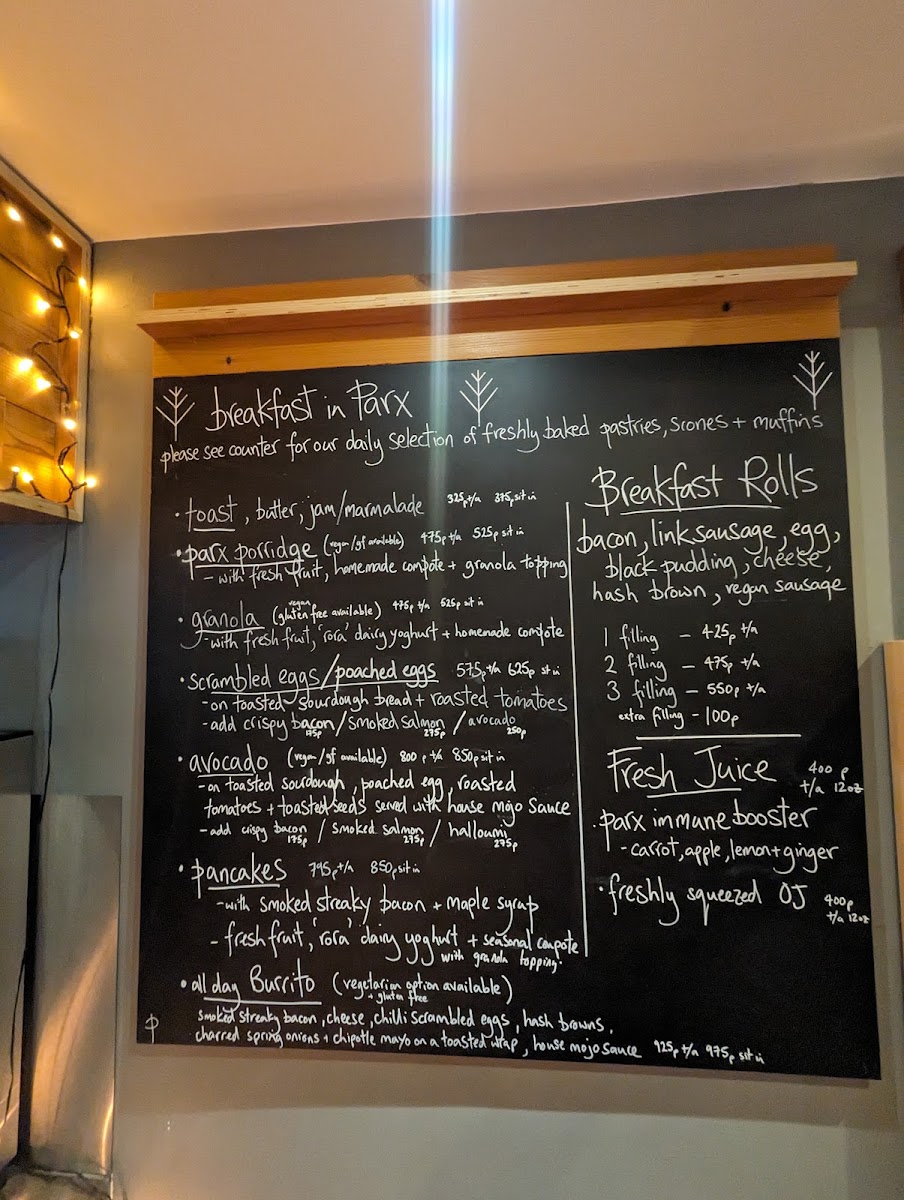 breakfast in Parx
please see counter for our daily selection of freshly baked pastries, scones + muffins
• toast, butter, jam/marmalade 325p t/a 375p sit in
• parx porridge (vegan/gf available) 475p t/a 525p sit in
- with fresh fruit, homemade compote + granola topping
• granola (vegan gluten free available) 475p t/a 525p sit in
- with fresh fruit, 'rora' dairy yoghurt + homemade compote
• scrambled eggs/poached eggs 575p t/a 625p sit in
- on toasted sourdough bread + roasted tomatoes
- add crispy bacon / smoked salmon / avocado
175p 275p 250p
• avocado (vegan/gf available) 800p t/a 850p sit in
- on toasted sourdough, poached egg, roasted
tomatoes + toasted seeds served with house mojo sauce
- add crispy bacon / smoked salmon / halloumi
175p 275p 275p
• pancakes 795p t/a 850p sit in
- with smoked streaky bacon + maple syrup
- fresh fruit, 'rora' dairy yoghurt + seasonal compote
with granola topping.
• all day Burrito (vegetarian option available)
+ gluten free
smoked streaky bacon, cheese, chilli scrambled eggs, hash browns,
charred spring onions + chipotle mayo on a toasted wrap, house mojo sauce 925p t/a 975p sit in
Breakfast Rolls
bacon, link sausage, egg,
black pudding, cheese,
hash brown, vegan sausage
1 filling - 425p t/a
2 filling - 475p t/a
3 filling - 550p t/a
extra filling - 100p
Fresh Juice 400p
t/a 12oz
• parx immune booster
- carrot, apple, lemon + ginger
• freshly squeezed OJ 400p
t/a 12oz